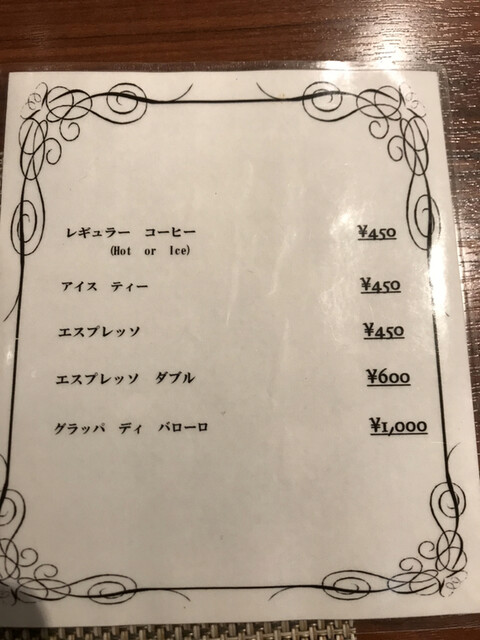 レギュラー コーヒー ¥450
(Hot or Ice)
アイス ティー ¥450
エスプレッソ ¥450
エスプレッソ ダブル ¥600
グラッパ ディ バローロ ¥1,000